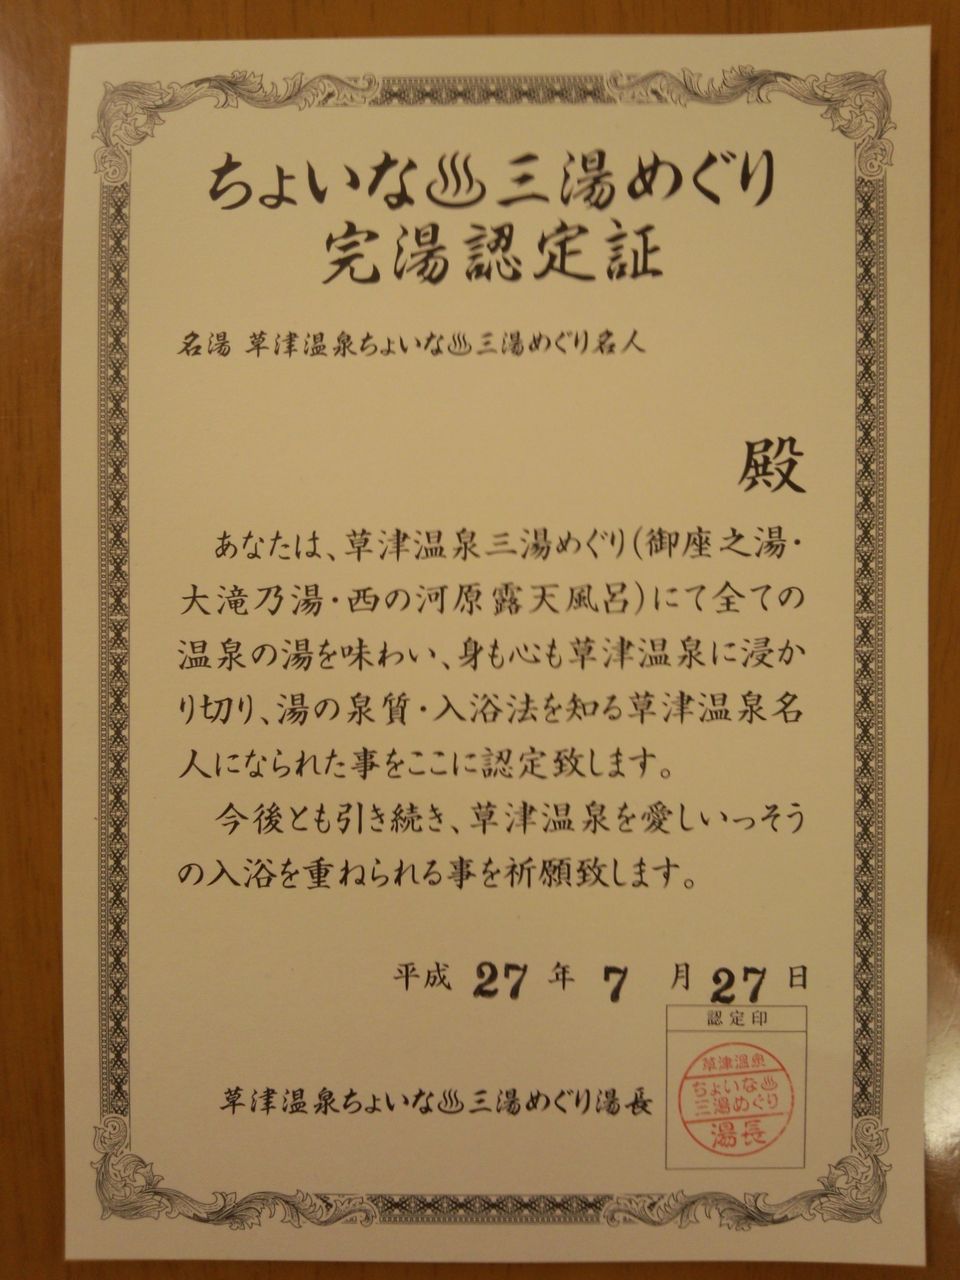 ちょいな♨三湯めぐり
完湯認定証
名湯 草津温泉ちょいな♨三湯めぐり名人
殿
あなたは、草津温泉三湯めぐり(御座之湯・
大滝乃湯・西の河原露天風呂)にて全ての
温泉の湯を味わい、身も心も草津温泉に浸か
り切り、湯の泉質・入浴法を知る草津温泉名
人になられた事をここに認定致します。
今後とも引き続き、草津温泉を愛しいっそう
の入浴を重ねられる事を祈願致します。
平成 27 年 7 月 27 日
認定印
草津温泉ちょいな♨三湯めぐり湯長
草津温泉
ちょいな♨
三湯めぐり
湯長